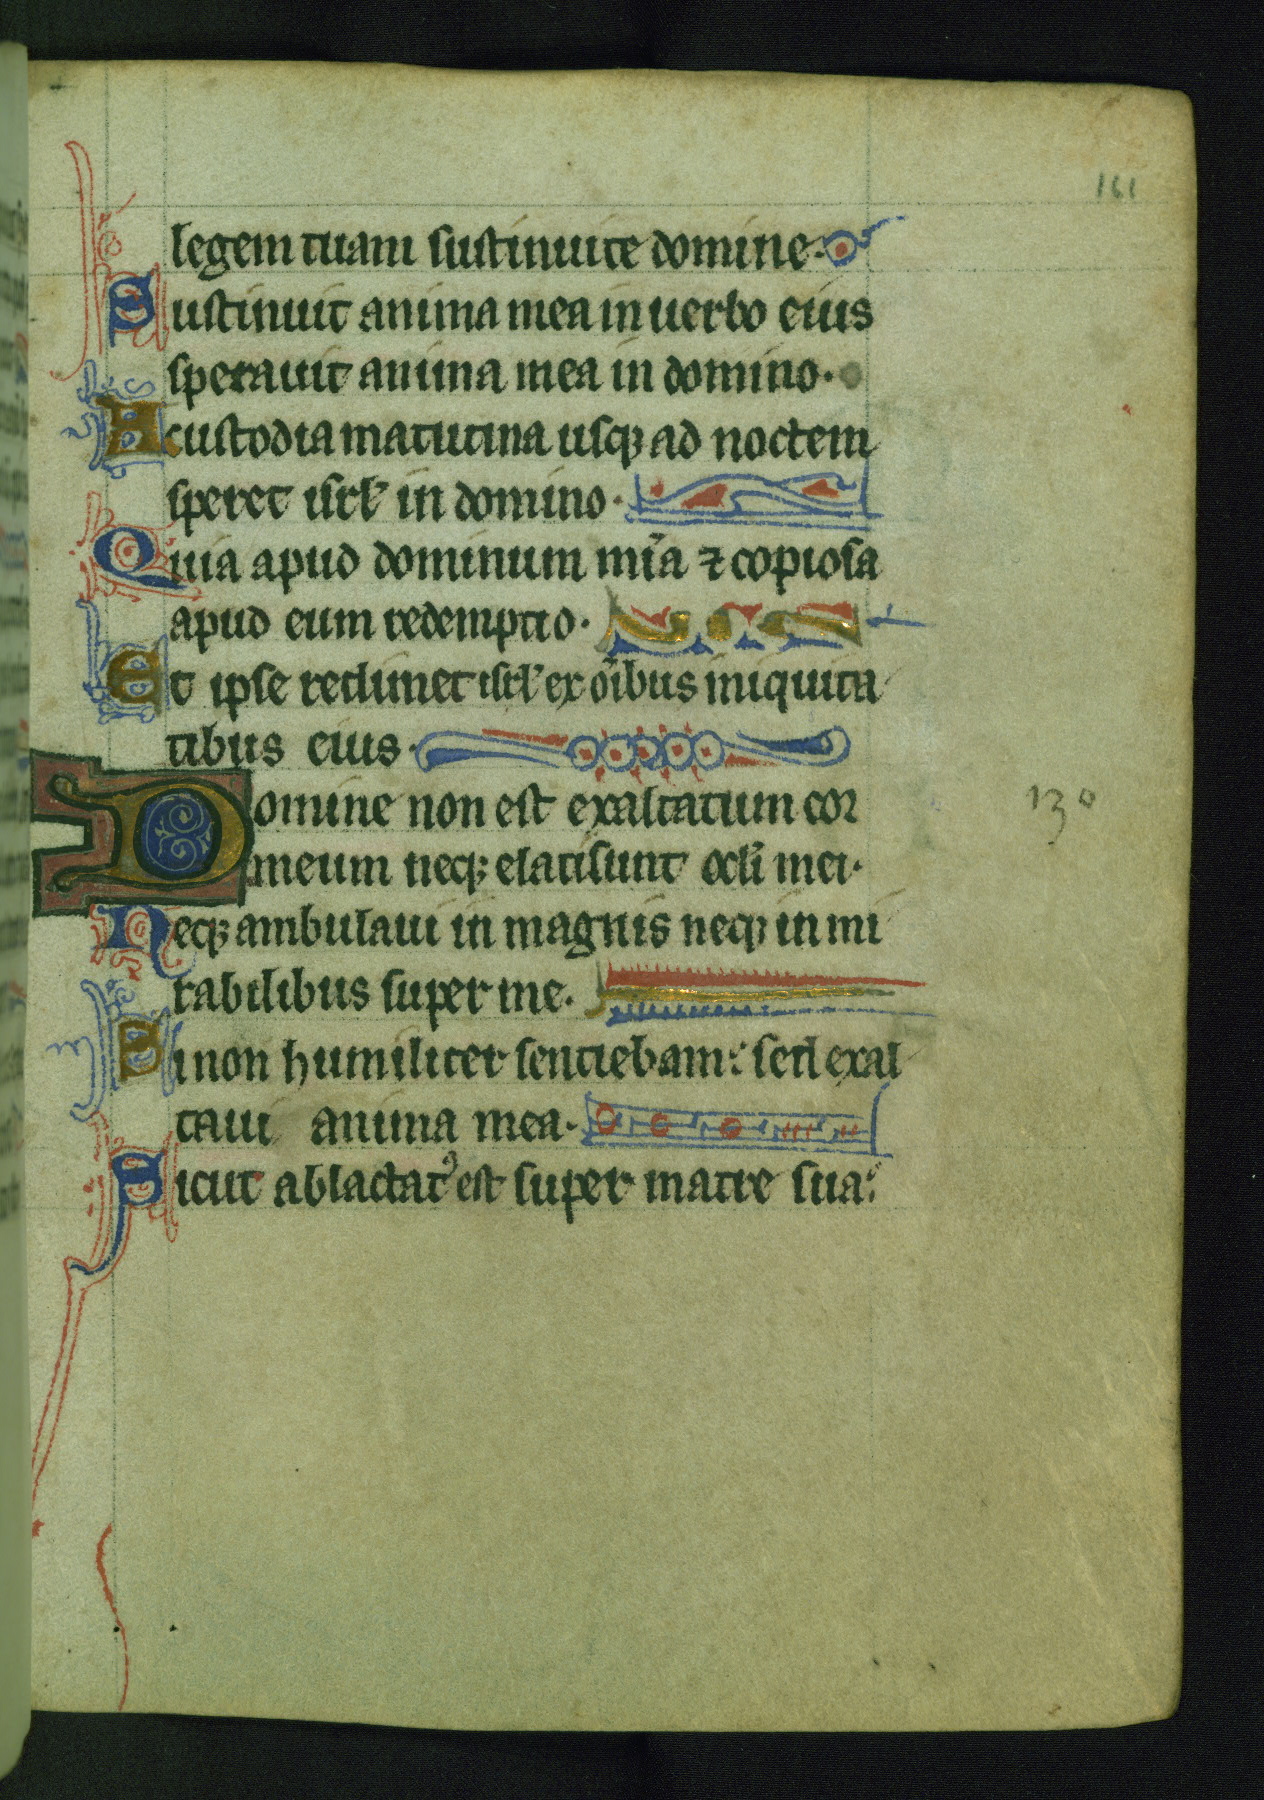 161
legem tuam sustinui te domine.
Sustinuit anima mea in uerbo eius
sperauit anima mea in domino.
A custodia matutina usqꝫ ad noctem
speret isrl̓ in domino.
Quia apud dominum mĩa ⁊ copiosa
apud eum redemptio.
Et ipse redimet isrl̓ ex oĩbus iniquita
tibus eius.
Domine non est exaltatum cor
meum neqꝫ elati sunt ocli̓ mei.
130
Neqꝫ ambulaui in magnis neqꝫ in mi
rabilibus super me.
Si non humiliter sentiebam: sed exal
taui anima mea.
Sicut ablactatꝰ est super matre sua: